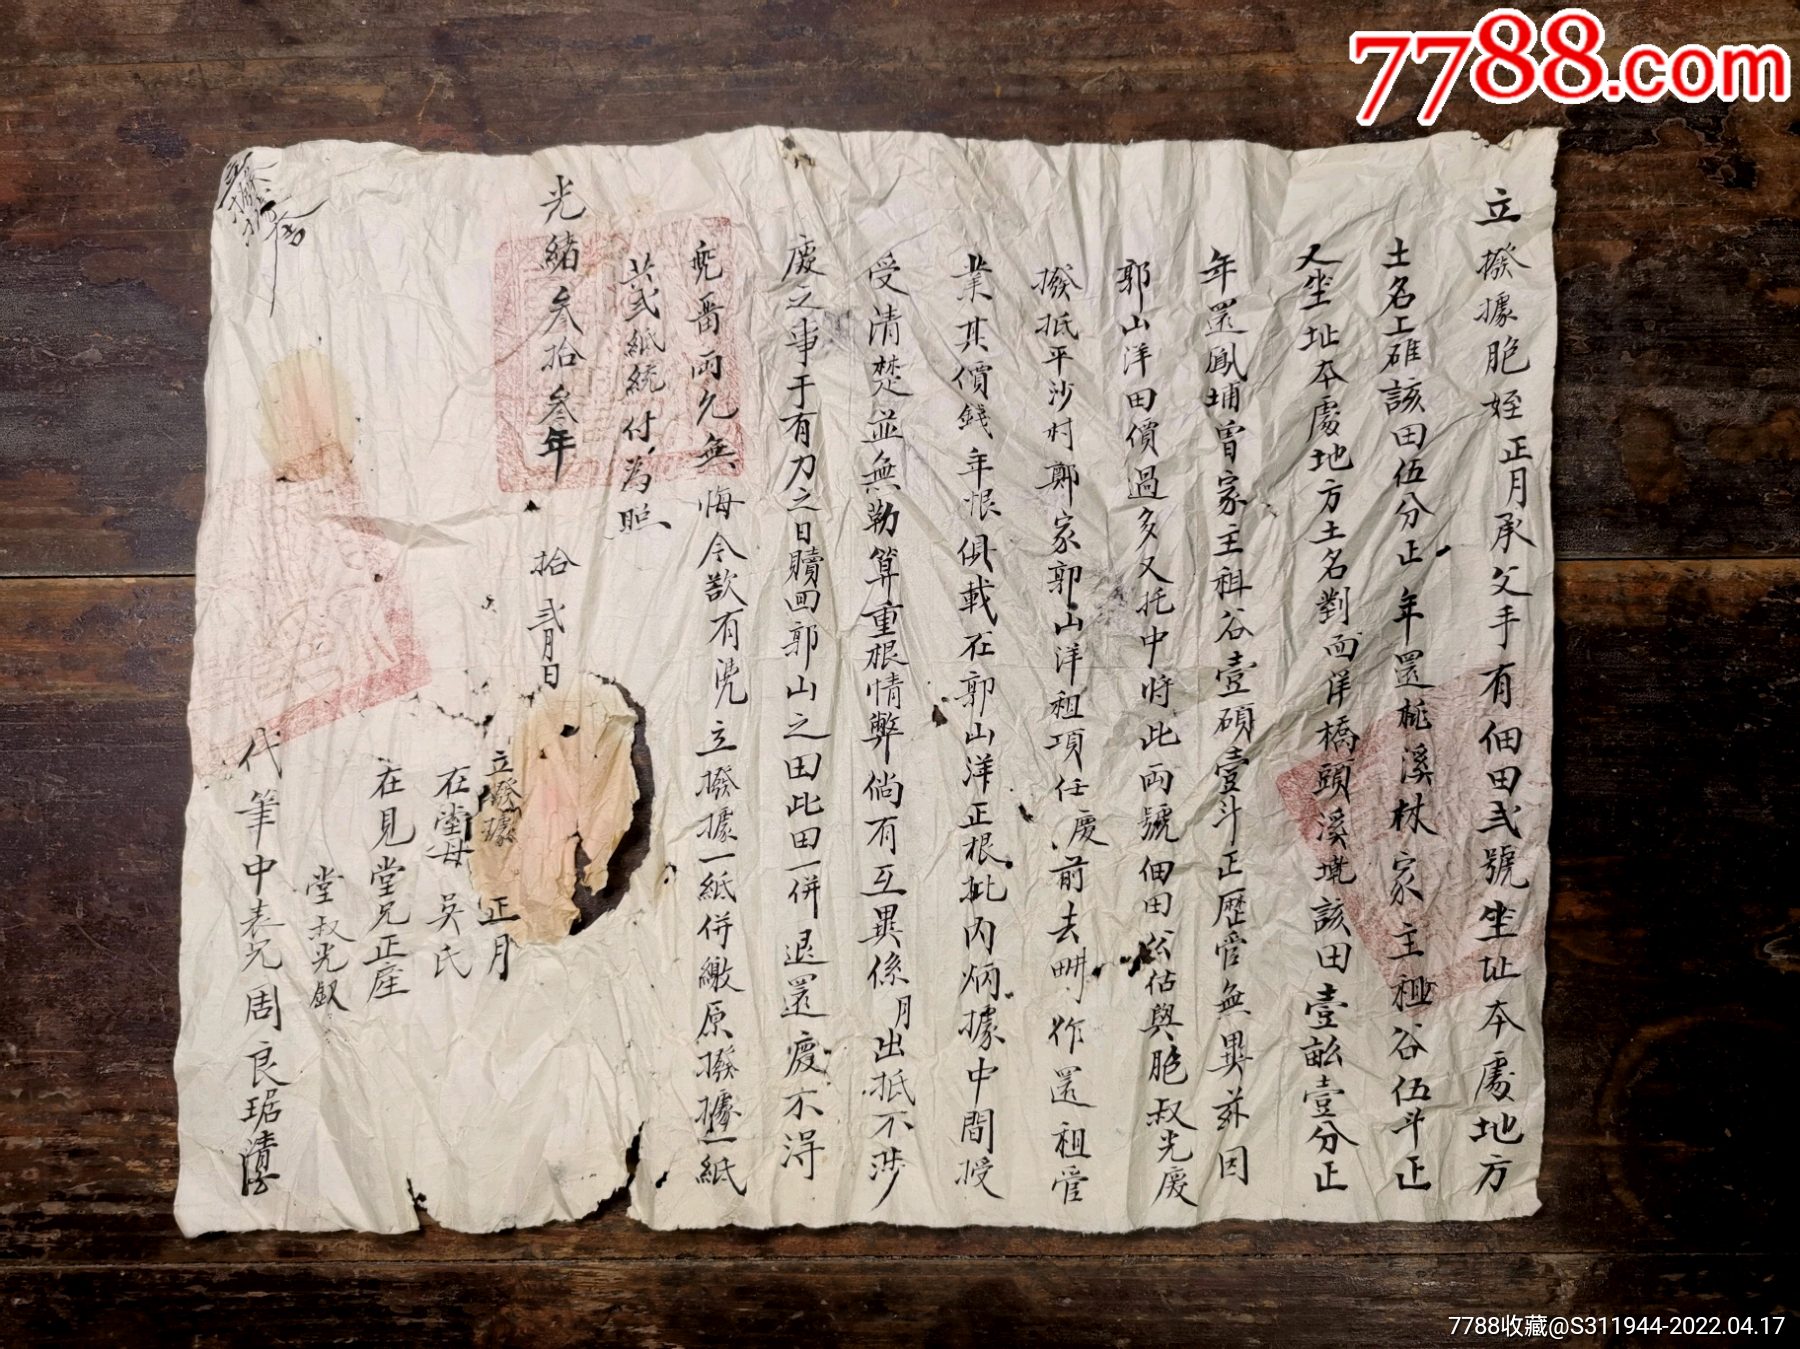 7788.com
立撥據胞姪正月承父手有佃田弍號坐址本處地方
土名工碓該田伍分正年還桃溪杖家主租谷伍斗正
又坐址本處地方土名對面洋橋頭溪墘該田壹畝壹分正
年還鳳埔曾家主租谷壹碩壹斗正歷管無異茲因
郭山洋田價過多又托中將此両號佃田公估與胞叔光慶
撥抵平沙村鄭家郭山洋租項任慶前去畊作還租管
業其價錢年限俱載在郭山洋正根批內炳據中間授
受清楚並無勒算重根情弊倘有互異係月出抵不涉
慶之事于有力之日贖回郭山之田此田一併退還慶不得
両允無悔今欲有憑立撥據一紙併繳原撥據一紙
共弍紙統付為照
光緒叁拾叁年 拾弍月 日
立撥據 正月
在堂母 吳氏
在見堂兄正座
堂叔光銀
代筆中表兄周良琚
7788收藏@S311944-2022.04.17